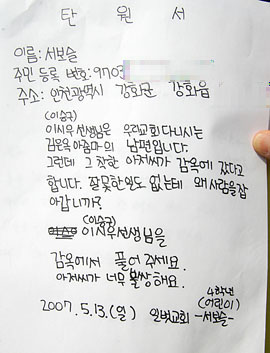 탄 원 서
이름: 서보슬
주민 등록 번호: 9703
주소: 인천광역시 강화군 강화읍
(이승구)
이시우선생님은 우리교회 다니시는
김은옥 아줌마의 남편입니다.
그런데 그 착한 아저씨가 감옥에 갔다고
합니다. 잘못한일도 없는데 왜 사람을 잡
아갑니까?
(이승구)
이시우선생님을
감옥에서 풀어 주세요.
아저씨가 너무 불쌍해요.
4학년
(어린이)
2007. 5. 13. (일) 일벗교회 -서보슬-